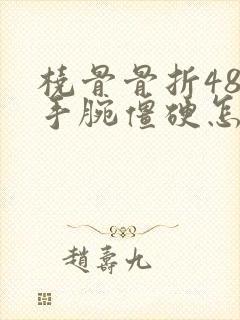 桡骨骨折48
手腕僵硬怎
趙壽九